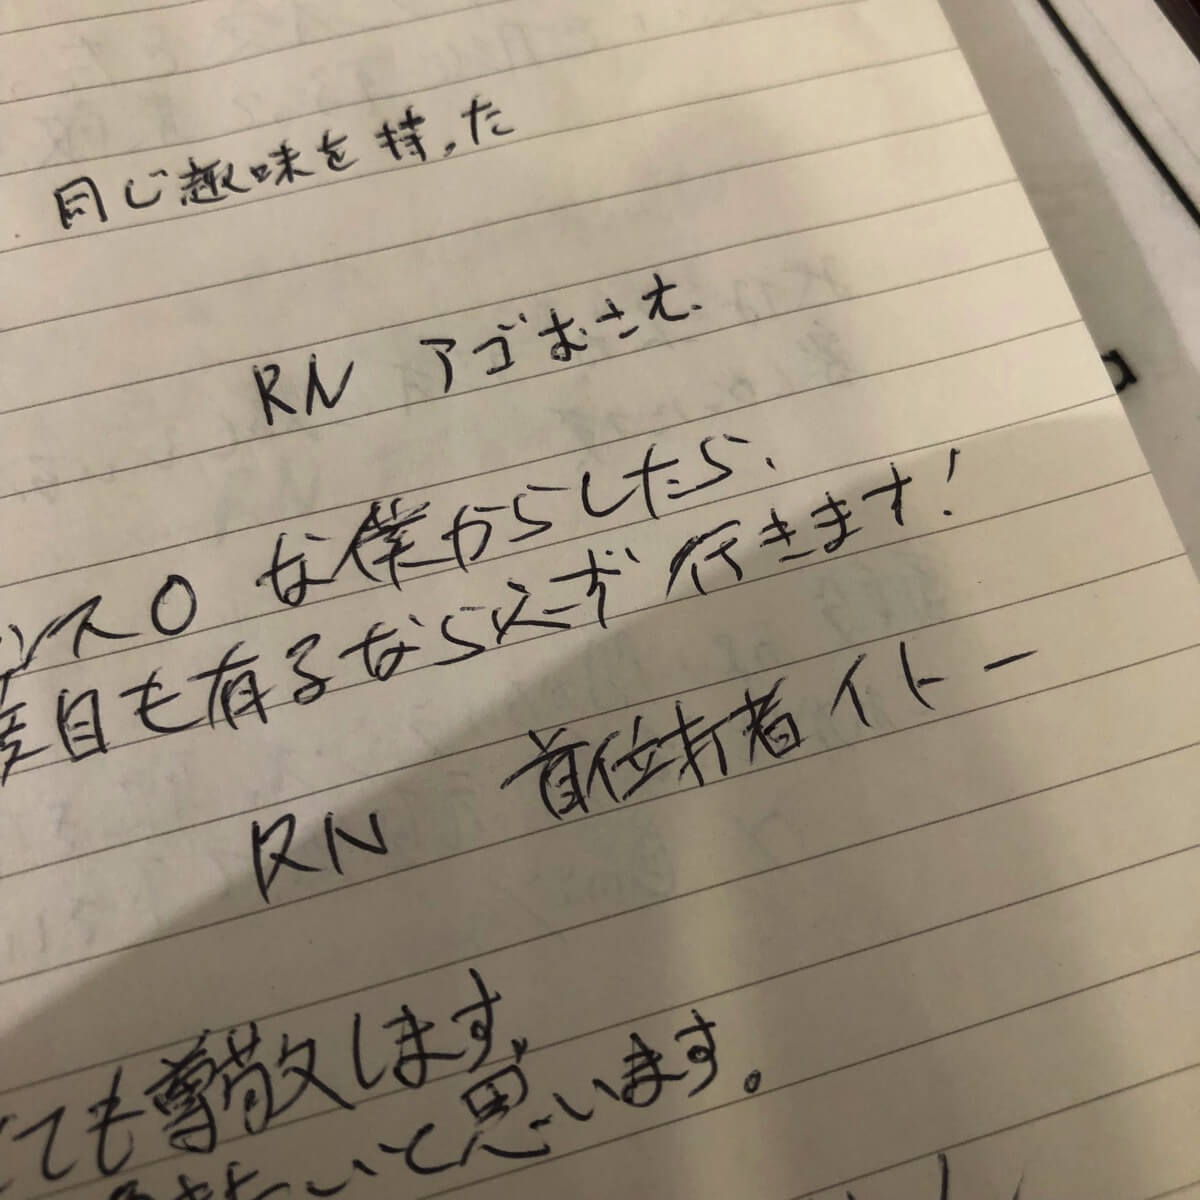 同じ趣味を持った
RN アゴおさえ
ンス0 な僕からしたら、
度目も有るなら必ず行きます!
RN 首位打者イトー
ても尊敬します。
たいと思います。